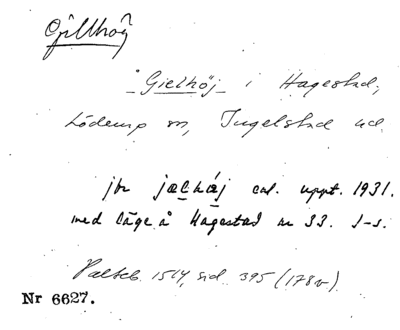 Gillhög
"Gielhöj i Hagestad,
Löderup sn, Ingelstad hd.
jfr jælhøj enl. uppt. 1931.
med läge å Hagestad nr 33. 1-1.
Palteb. 1514, sid. 395 (178v).
Nr 6627.